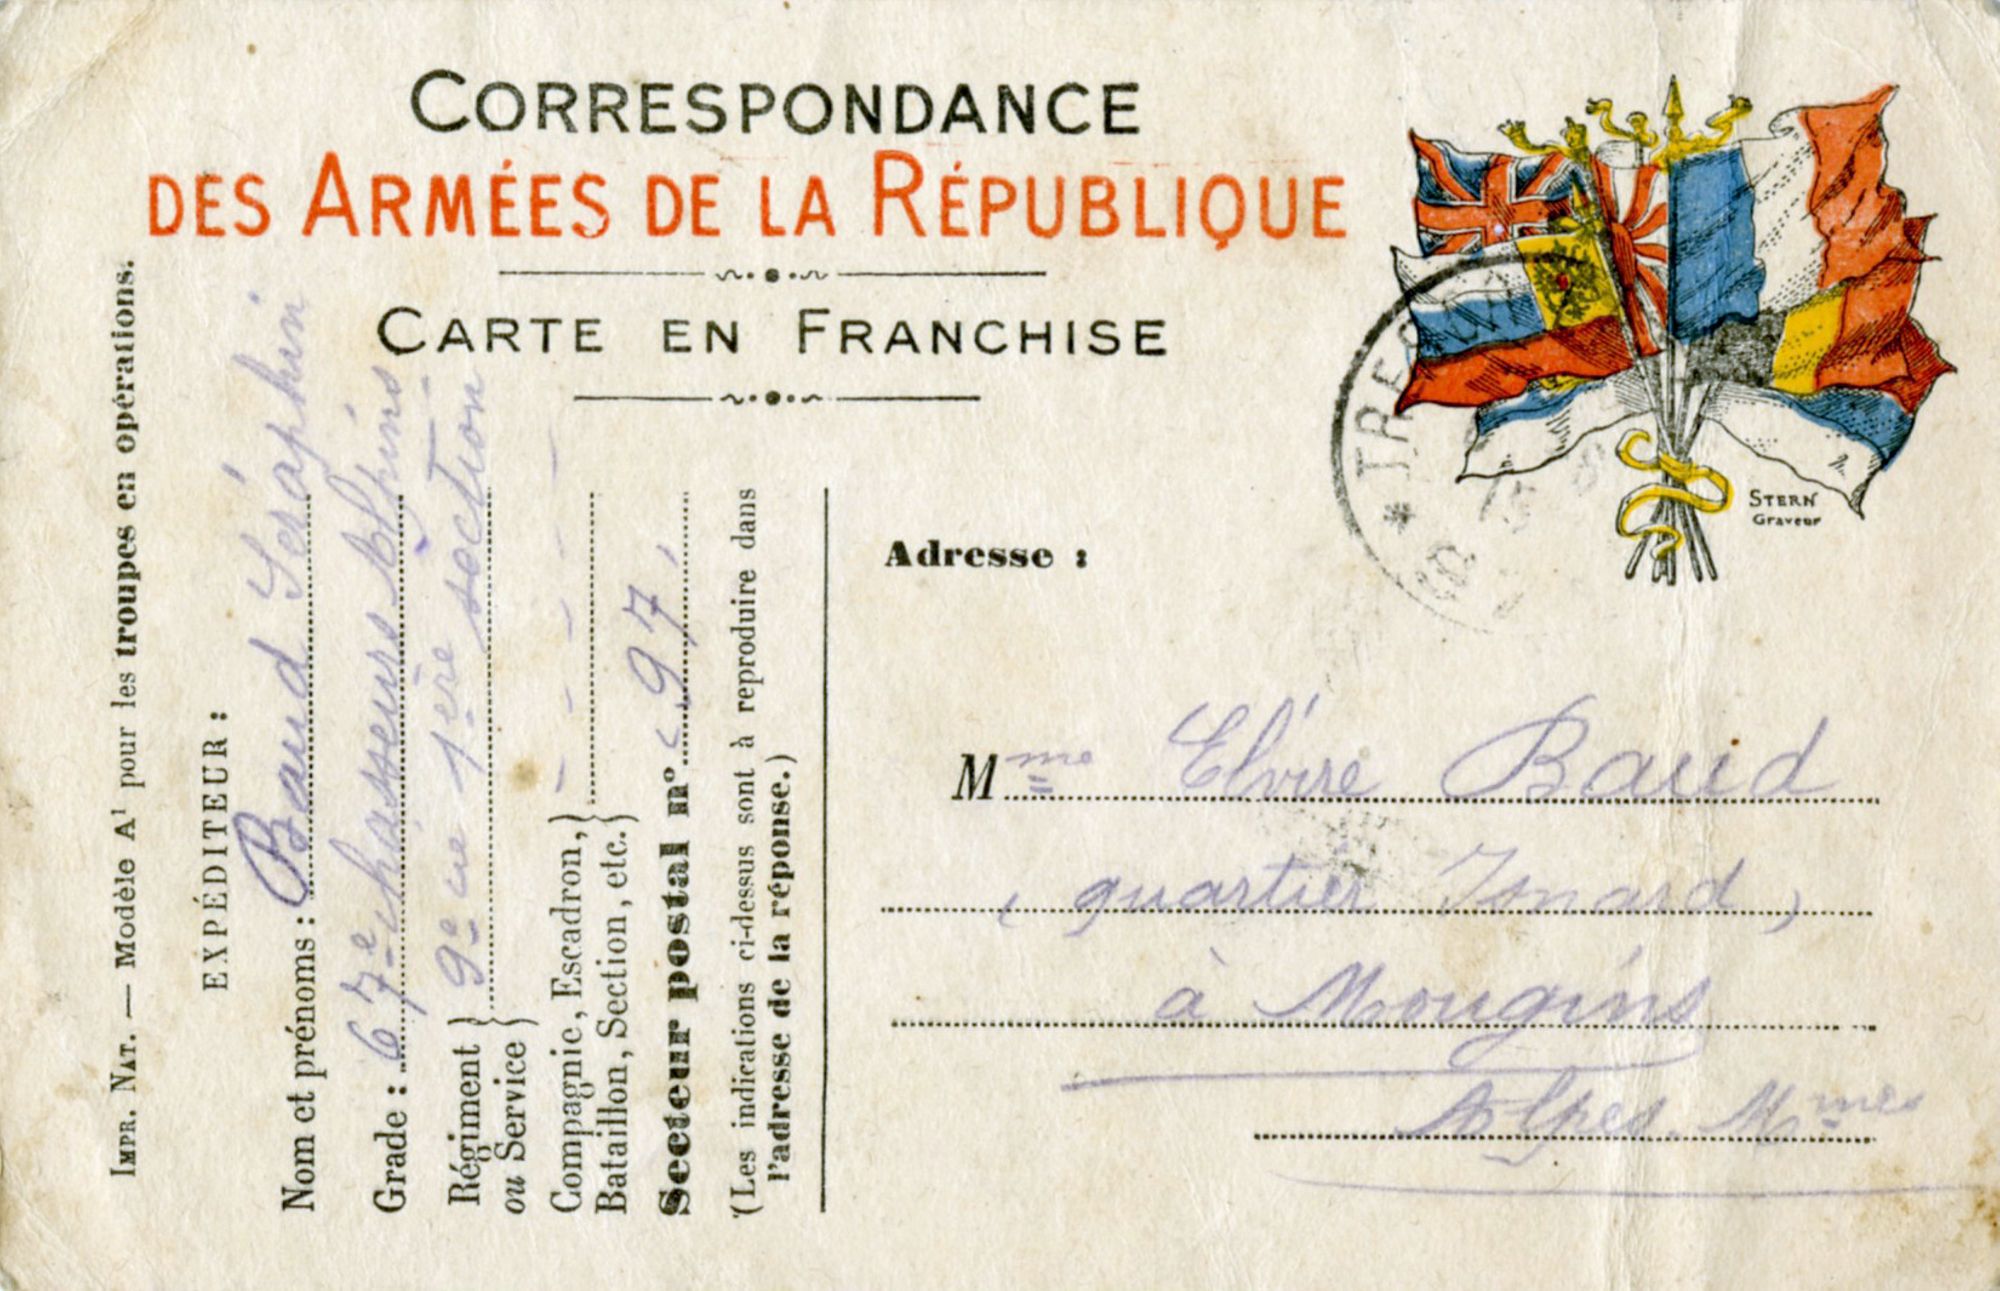 CORRESPONDANCE
DES ARMÉES DE LA RÉPUBLIQUE
CARTE EN FRANCHISE
STERN
Graveur
IMPR. NAT. — Modèle A¹ pour les troupes en opérations.
EXPÉDITEUR :
Nom et prénoms : Baud Séraphin
Grade : 67e chasseurs Alpins
Régiment ou Service } 9e Cie 1ère section
Compagnie, Escadron, Bataillon, Section, etc. }
Secteur postal n° 97
(Les indications ci-dessus sont à reproduire dans
l'adresse de la réponse.)
Adresse :
Mme Elvire Baud
(quartier Isnard)
à Mougins
Alpes Mmes